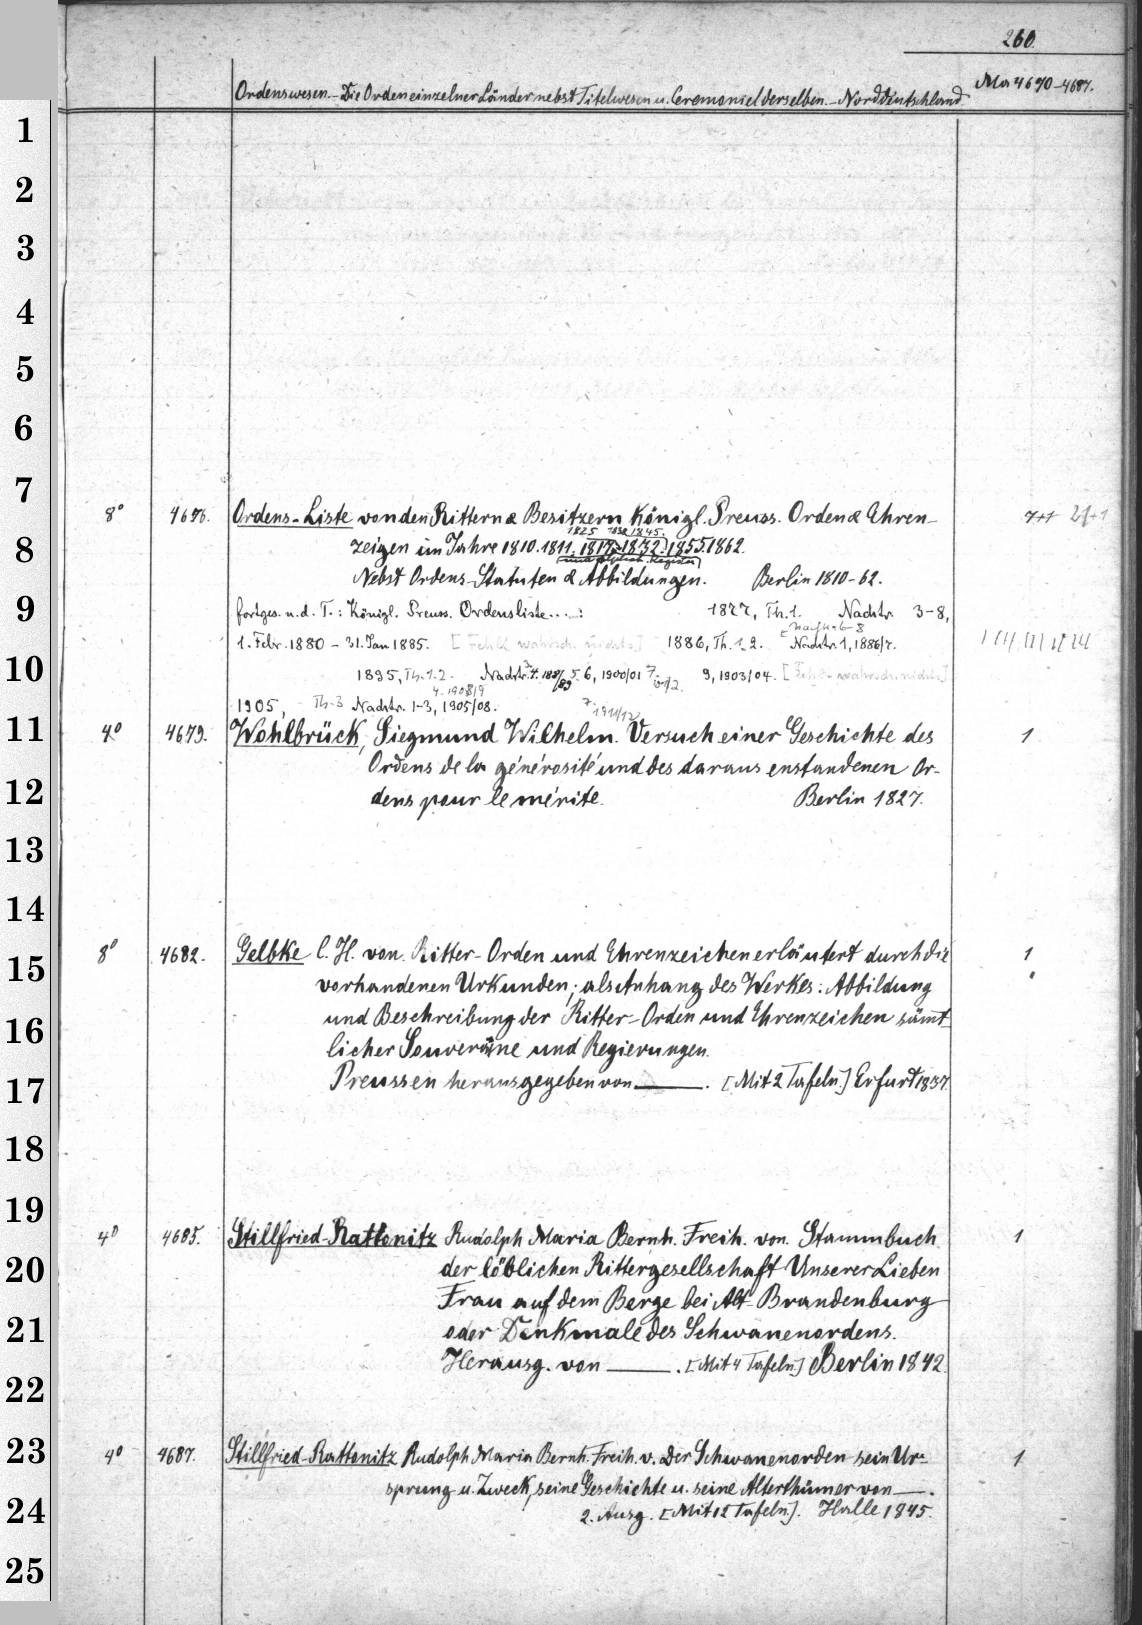 260.
Ordenswesen. - Die Orden einzelner Länder nebst Titelwesen u. Ceremoniel derselben. - Norddeutschland. Ma 4670-4687.
1
2
3
4
5
6
7
8° 4676. Ordens-Liste von den Rittern & Besitzern Königl. Preuss. Orden & Ehren-
1825 1845.
8 zeigen im Jahre 1810. 1811. 1817. 1832. 1855. 1862.
Nebst Ordens-Statuten & Abbildungen. Berlin 1810-62.
9 fortges. u. d. T.: Königl. Preuss. Ordensliste...: 1877, Th. 1. Nachtr. 3-8,
1. Febr. 1880 - 31. Jan 1885. [Fehlt wahrsch. nichts] 1886, Th. 1. 2. Nachtr. 1, 1886/7.
10 1895, Th. 1. 2. Nachtr. 5. 6, 1900/01 9, 1903/04. [Fehlt wahrsch. nichts]
4. 1908/9
1905, Th. 3 Nachtr. 1-3, 1905/08.
11 4° 4679. Wohlbrück, Siegmund Wilhelm. Versuch einer Geschichte des 1
Ordens de la générosité und des daraus enstandenen Or-
12 dens pour le mérite. Berlin 1827.
13
14
8° 4682. Gelbke C. H. von. Ritter-Orden und Ehrenzeichen erläutert durch die 1
15 vorhandenen Urkunden; als Anhang des Werkes: Abbildung
16 und Beschreibung der Ritter-Orden und Ehrenzeichen sämt-
licher Souveräne und Regierungen.
17 Preussen herausgegeben von ——. [Mit 2 Tafeln.] Erfurt 1837.
18
19
4° 4685. Stillfried-Rattonitz Rudolph Maria Bernh. Freih. von. Stammbuch 1
20 der löblichen Rittergesellschaft Unserer Lieben
Frau auf dem Berge bei Alt-Brandenburg
21 oder Denkmale des Schwanenordens.
22 Herausg. von ——. [Mit 4 Tafeln.] Berlin 1842.
23 4° 4687. Stillfried-Rattonitz Rudolph Maria Bernh. Freih. v. Der Schwanenorden sein Ur- 1
sprung u. Zweck, seine Geschichte u. seine Alterthümer von ——.
24 2. Ausg. [Mit 12 Tafeln.]. Halle 1845.
25